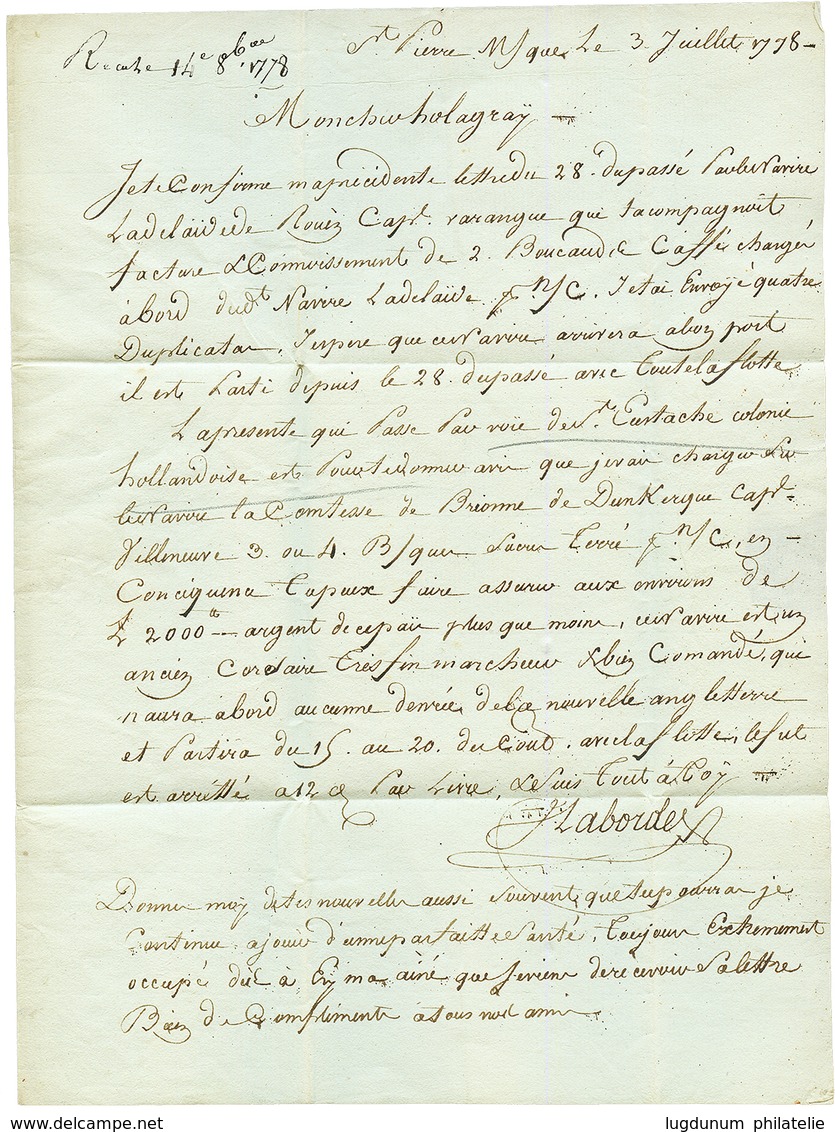 St. Pierre M/que Le 3. Juillet 1778 -
Recue 14e 8bre 1778
Moncher holagraÿ
Jete Confirme maprecidente lettre du 28. dupassé Parle Navire
Ladelaïde de Roüen Capt. varangue qui tacompagnoit
facture & Connoissement de 2. Boucauds Caffé chargés
àbord dudt. Navire Ladelaïde pr n/C. Jetai Envoÿé quatre
Duplicata, J'espere que ce Navire arrivera abon port
il est Parti depuis le 28. dupassé avec toute la flotte
Lapresente qui Passe Par voïe de St. Eustache colonie
hollandoise est Pour te donner avis que je vais charger Sur
le Navire la Comtesse de Brionne de DunKerque Capt.
Villeneuve 3. ou 4. B/ques Sucre Terré pr n/C, en -
Concequence tu peux faire assurer aux environs de
₤ 2000 tt - argent de ce païs plus que moins, ce Navire est un
ancien Corsaire très fin marcheur & bien Comandé, qui
naura àbord aucunne denrée de la nouvelle angletterre
et Partira du 15. au 20. du Cout. avec la flotte, le fret
est arrétté a 12 d Par Livre, Je suis tout à toÿ
J. Labordes
Donne moÿ de tes nouvelles aussi souvent que tu pourras je
Continue ajouir d'une parfaitte Santé, toujours Extremement
occupé, dis à Eyma ainé que je viens de recevoir Sa lettre
Bien de Compliments atous nos amis
lugdunum philatelie
www.delcampe.net